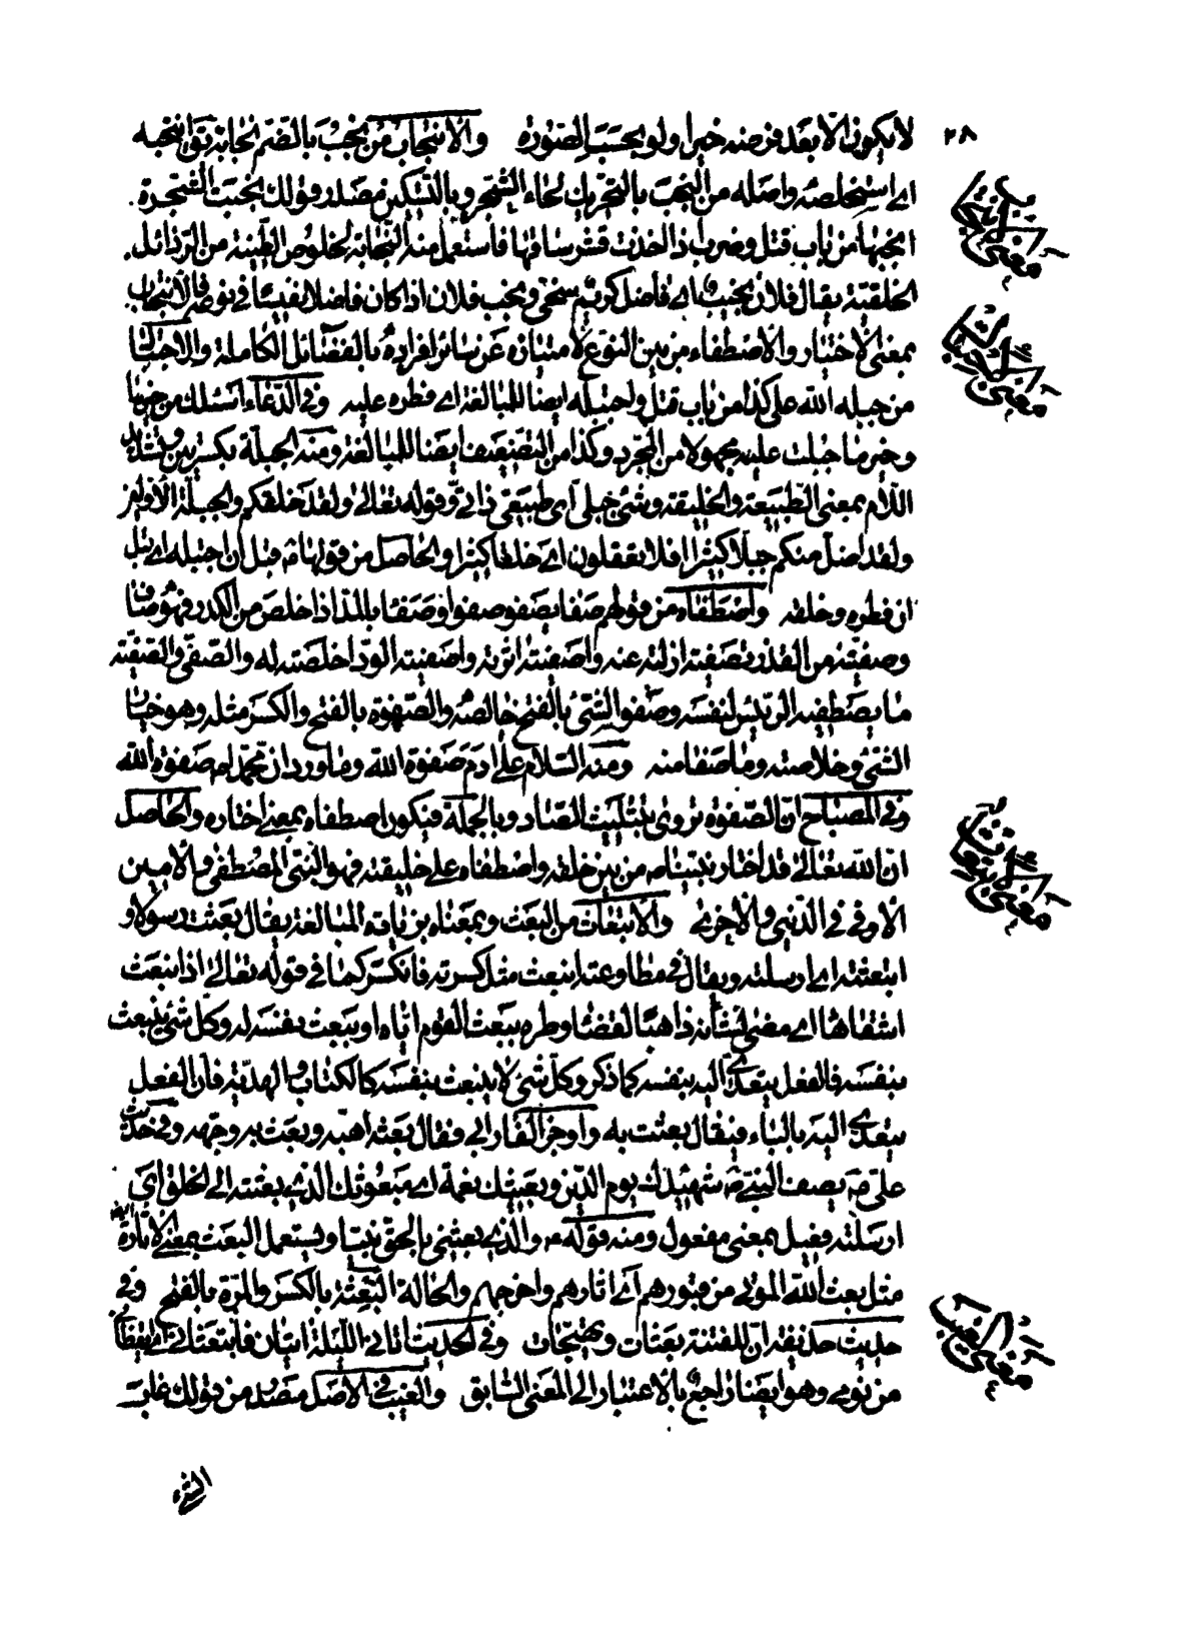 ٢٨
لا يكون الا بعد فرضه خيرا ولو بحسب الصورة والانتجاب من نجب بالضم نجابة يق انتجبه
اى استخلصه واصله من النجب بالتحريك لحاء الشجر وبالتسكين مصدر قولك نجبت الشجرة
انجبها من باب قتل وضرب اذا اخذت قشر ساقها فاستعمل منه النجابة لخلوص الطينة من الرذائل
الخلقية يقال فلان نجيب اى فاضل كريم سخى ونجب فلان اذا كان فاضلا نفيسا فى نوعه فالانتجاب
بمعنى الاختيار والاصطفاء من بين النوع لامتيازه عن سائر افراده بالفضائل الكاملة والاجتبال
من جبله الله على كذا من باب قتل واجتبله ايضا للمبالغة اى فطره عليه وفى الدعاء اسئلك من خيرها
وخير ما جبلت عليه مجهولا من المجرد وكذا من التضعيف ايضا للمبالغة ومنه الجبلة بكسرتين وتشديد
اللام بمعنى الطبيعة والخليقة وشئ جبلى اى طبيعى ذاتى وقوله تعالى ولقد خلقكم والجبلة الاولين
ولقد اضل منكم جبلا كثيرا افلا تعقلون اى خلقا كثيرا والحاصل من قولها ع قبل ان اجتبله اى قبل
ان فطره وخلقه واصطفاه من قولهم صفا يصفو صفوا وصفاء بالمد اذا خلص من الكدر فهو صاف
وصفيته من القذى تصفية ازلته عنه واصفيته اثرته واصفيته الود اخلصته له والصفى والصفية
ما يصطفيه الرئيس لنفسه وصفو الشئ بالفتح خالصه والصفوة بالفتح والكسر مثله وهو خيار
الشئ وخلاصته وما صفا منه ومنه السلام على ادم صفوة الله وما ورد ان محمدا ص صفوة الله
وفى المصباح ان الصفوة تروى بتثليث الصاد وبالجملة فيكون اصطفاه بمعنى اختاره والحاصل
ان الله تعالى قد اختار نبينا ص من بين خلقه واصطفاه على خليقته فهو النبى المصطفى والامين
الاوفى فى الدنيى والاخرى والابتعاث من البعث وبمعناه بزيادة المبالغة يقال بعثت رسولا و
ابتعثته اى ارسلته ويقال فى مطاوعته انبعث مثل كسرته فانكسر كما فى قوله تعالى اذ انبعث
اشقاها اى مضى لشأنه ذاهبا لقضاء وطره يبعث القوم اياه او يبعث بنفسه له وكل شئ ينبعث
بنفسه فالفعل يتعدى اليه بنفسه كما ذكر وكل شئ لا ينبعث بنفسه كالكتاب والهدية فان الفعل
يتعدى اليه بالباء فيقال بعثت به واوجز الفارابى فقال بعثه اهبه وبعث به وجهه وفى حديث
على ع يصف النبى ص شهيدك يوم الدين وبعيثك نعمة اى مبعوثك الذى بعثته الى الخلق اى
ارسلته فعيل بمعنى مفعول ومنه قوله ص والذى بعثنى بالحق نبيا ويستعمل البعث بمعنى الاثارة ايضا
مثل بعث الله الموتى من قبورهم اى اثارهم واخرجهم والحالة البعثة بالكسر والمرة بالفتح وفى
حديث حذيفة ان للفتنة بعثات وتهيجات وفى الحديث اتانى الليلة اتيان فابتعثانى اى ايقظانى
من نومى وهو ايضا راجع بالاعتبار الى المعنى السابق والغيب فى الاصل مصدر من قولك غاب
معنى الانتجاب
معنى الاجتبال
معنى الابتعاث
معنى الغيب
الشئ